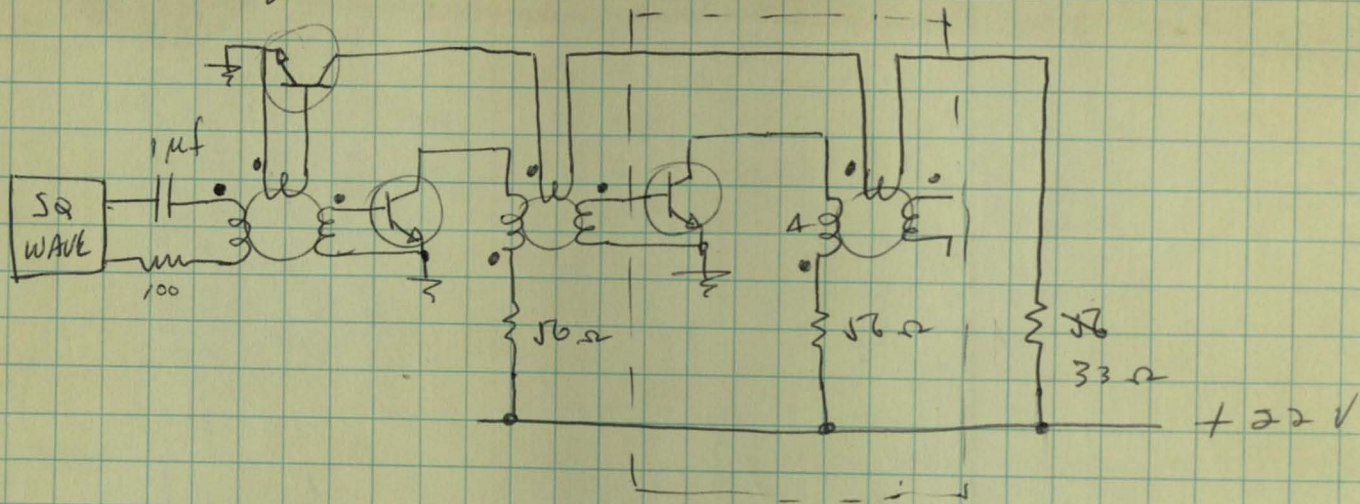 1 μf
SQ
WAVE
100
4
56 Ω
56 Ω
56
33 Ω
+22 V